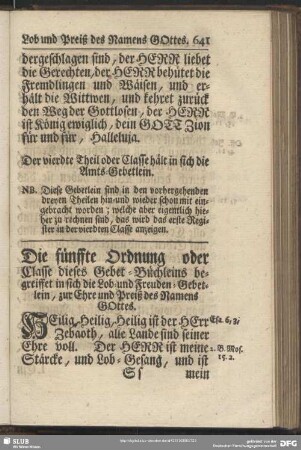 Lob und Preiß des Namens GOttes. 641
dergeschlagen sind, der HERR liebet
die Gerechten, der HERR behütet die
Fremdlingen und Wäisen, und er-
hält die Wittwen, und kehret zurück
den Weg der Gottlosen, der HERR
ist König ewiglich, dein GOTT Zion
für und für, Halleluja.
Der vierdte Theil oder Classe hält in sich die
Amts-Gebetlein.
NB. Diese Gebetlein sind in den vorhergehenden
dreyen Theilen hin und wieder schon mit ein-
gebracht worden; welche aber eigentlich hie-
her zu rechnen sind, das wird das erste Regi-
ster in der vierdten Classe anzeigen.
Die fünffte Ordnung oder
Classe dieses Gebet-Büchleins be-
greiffet in sich die Lob- und Freuden-Gebet-
lein, zur Ehre und Preiß des Namens
GOttes.
HEilig, Heilig, Heilig ist der HErr Esa. 6, 3.
Zebaoth, alle Lande sind seiner
Ehre voll. Der HERR ist meine 2. B. Mos.
Stärcke, und Lob-Gesang, und ist 15. 2.
Ss mein
SLUB
Wir führen Wissen.
gefördert von der
Deutschen Forschungsgemeinschaft